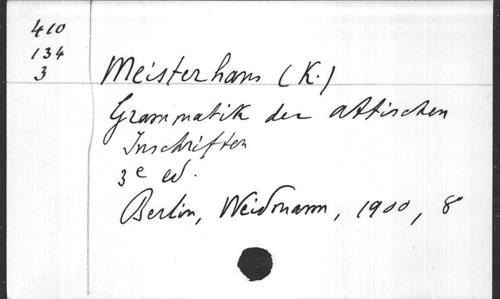 410
134
3
Meisterhans (K.)
Grammatik der attischen
Inschriften
3e ed.
Berlin, Weidmann, 1900, 8°